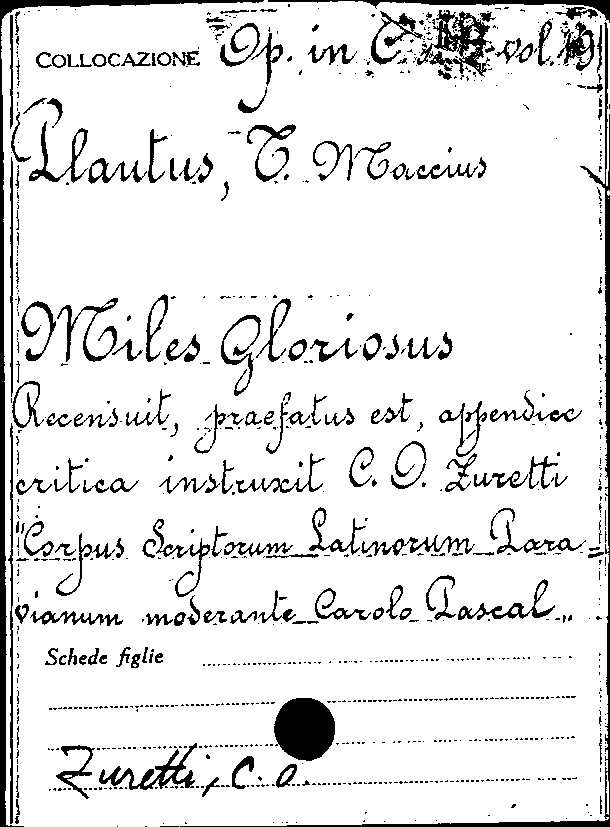 COLLOCAZIONE Op. in C. vol. 19
Plautus, T. Maccius
Miles Gloriosus
Recensuit, praefatus est, appendice
critica instruxit C. O. Zuretti
"Corpus Scriptorum Latinorum Para=
vianum moderante Carolo Pascal„
Schede figlie
Zuretti, C. O.